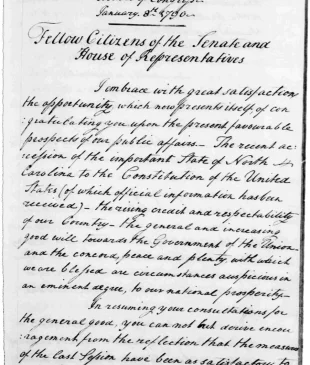 of Congress
January. 8th. 1790
Fellow Citizens of the Senate and
House of Representatives
I embrace with great satisfaction
the opportunity, which now presents itself, of con
gratulating you upon the present favourable
prospects of our public affairs — The recent ac
cession of the important State of North
Carolina to the Constitution of the United
States (of which official information has been
received,) — the rising credit and respectability
of our Country — the general and increasing
good will towards the Government of the Union —
and the concord, peace and plenty, with which
we are blessed are circumstances auspicious in
an eminent degree, to our national prosperity —
In resuming your consultations for
the general good, you can not but derive encou
ragement from the reflection that the measures
of the last Session have been as satisfactory to